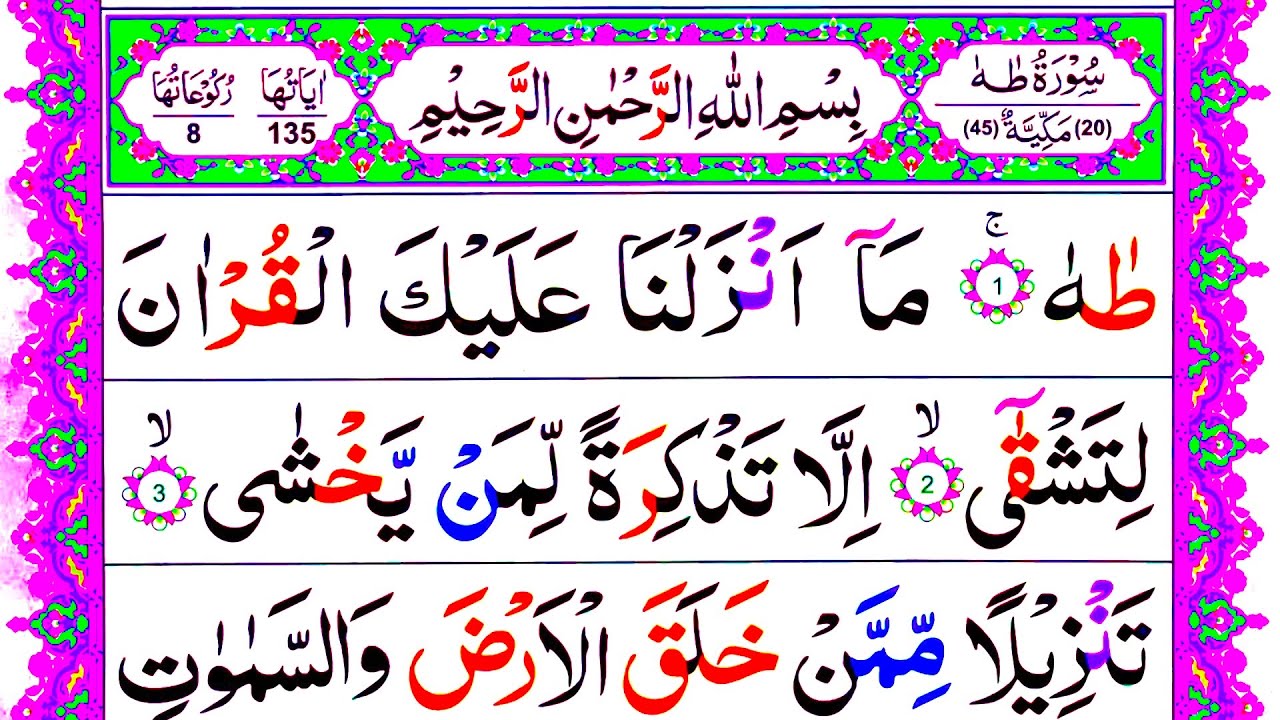 سُوْرَةُ طٰهٰ
(20) مَكِّيَّةٌ (45)
بِسْمِ اللّٰهِ الرَّحْمٰنِ الرَّحِيْمِ
اٰيَاتُهَا 135
رُكُوْعَاتُهَا 8
طٰهٰ ۚ 1 مَاۤ اَنْزَلْنَا عَلَيْكَ الْقُرْاٰنَ
لِتَشْقٰۤى ۙ 2 اِلَّا تَذْكِرَةً لِّمَنْ يَّخْشٰى ۙ 3
تَنْزِيْلًا مِّمَّنْ خَلَقَ الْاَرْضَ وَالسَّمٰوٰتِ